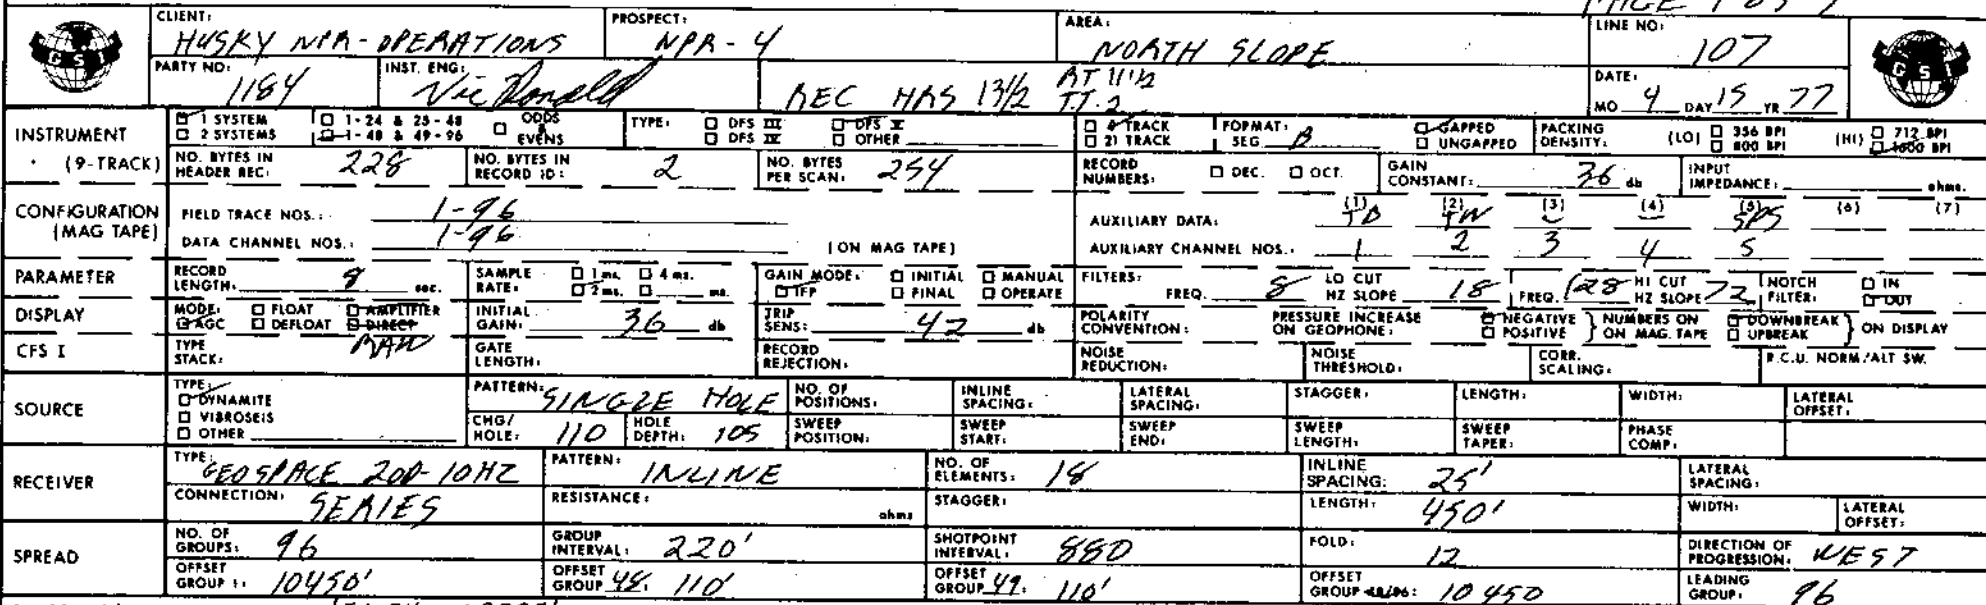 PAGE 1 OF 7
CLIENT: PROSPECT: AREA: LINE NO:
HUSKY NPR-OPERATIONS NPR-4 NORTH SLOPE 107
GSI GSI
PARTY NO: INST. ENG: DATE:
1184 Vic Ronald REC HAS 13 1/2 AT 11 1/2 TT.2 MO 4 DAY 15 YR 77
INSTRUMENT 1 SYSTEM 1-24 & 25-48 ODDS & EVENS TYPE: DFS III DFS V 9 TRACK FORMAT: GAPPED PACKING DENSITY: (LO) 356 BPI (HI) 712 BPI
2 SYSTEMS 1-48 & 49-96 DFS IV OTHER 21 TRACK SEG B UNGAPPED 800 BPI 1600 BPI
(9-TRACK) NO. BYTES IN HEADER REC: 228 NO. BYTES IN RECORD ID: 2 NO. BYTES PER SCAN: 254 RECORD NUMBERS: DEC. OCT. GAIN CONSTANT: 36 db INPUT IMPEDANCE: ohms.
CONFIGURATION FIELD TRACE NOS.: 1-96 AUXILIARY DATA: (1) TB (2) TW (3) (4) (5) SPS (6) (7)
(MAG TAPE) DATA CHANNEL NOS.: 1-96 (ON MAG TAPE) AUXILIARY CHANNEL NOS.: 1 2 3 4 5
PARAMETER RECORD LENGTH: 8 sec. SAMPLE RATE: 1 ms. 4 ms. 2 ms. ms. GAIN MODE: INITIAL MANUAL IFP FINAL OPERATE FILTERS: FREQ. 8 LO CUT HZ SLOPE 18 FREQ. 128 HI CUT HZ SLOPE 72 NOTCH FILTER: IN OUT
DISPLAY MODE: FLOAT AMPLIFIER AGC DEFLOAT DIRECT INITIAL GAIN: 36 db TRIP SENS: 42 db POLARITY CONVENTION: PRESSURE INCREASE ON GEOPHONE: NEGATIVE POSITIVE NUMBERS ON ON MAG. TAPE DOWNBREAK UPBREAK ON DISPLAY
CFS I TYPE STACK: RAW GATE LENGTH: RECORD REJECTION: NOISE REDUCTION: NOISE THRESHOLD: CORR. SCALING: R.C.U. NORM/ALT SW.
SOURCE TYPE: DYNAMITE PATTERN: SINGLE HOLE NO. OF POSITIONS: INLINE SPACING: LATERAL SPACING: STAGGER: LENGTH: WIDTH: LATERAL OFFSET:
VIBROSEIS OTHER CHG/HOLE: 110 HOLE DEPTH: 105 SWEEP POSITION: SWEEP START: SWEEP END: SWEEP LENGTH: SWEEP TAPER: PHASE COMP:
RECEIVER TYPE: GEOSPACE 20D-10HZ PATTERN: INLINE NO. OF ELEMENTS: 18 INLINE SPACING: 25' LATERAL SPACING:
CONNECTION: SERIES RESISTANCE: ohms STAGGER: LENGTH: 450' WIDTH: LATERAL OFFSET:
SPREAD NO. OF GROUPS: 96 GROUP INTERVAL: 220' SHOTPOINT INTERVAL: 880 FOLD: 12 DIRECTION OF PROGRESSION: WEST
OFFSET GROUP 1: 10450' OFFSET GROUP 48: 110' OFFSET GROUP 49: 110' OFFSET GROUP 48/96: 10450 LEADING GROUP: 96